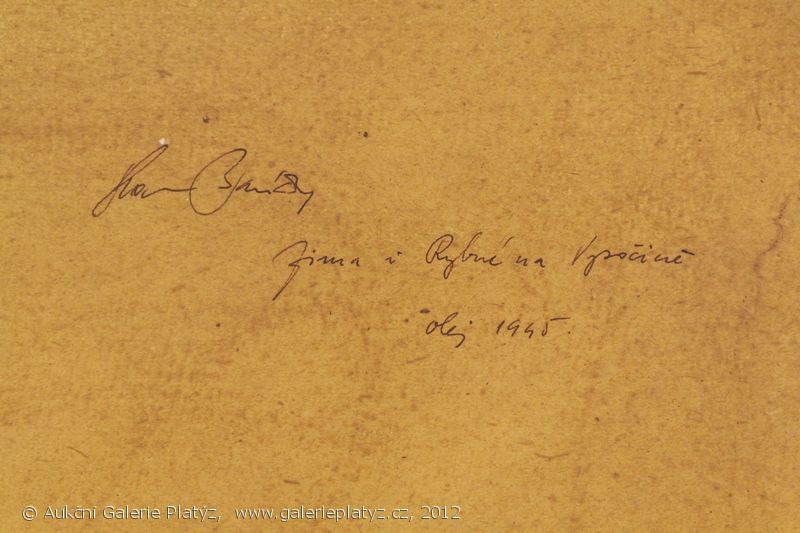 Zima Rybné na Vysočině
olej 1945.
© Aukční Galerie Platýz, www.galerieplatyz.cz, 2012